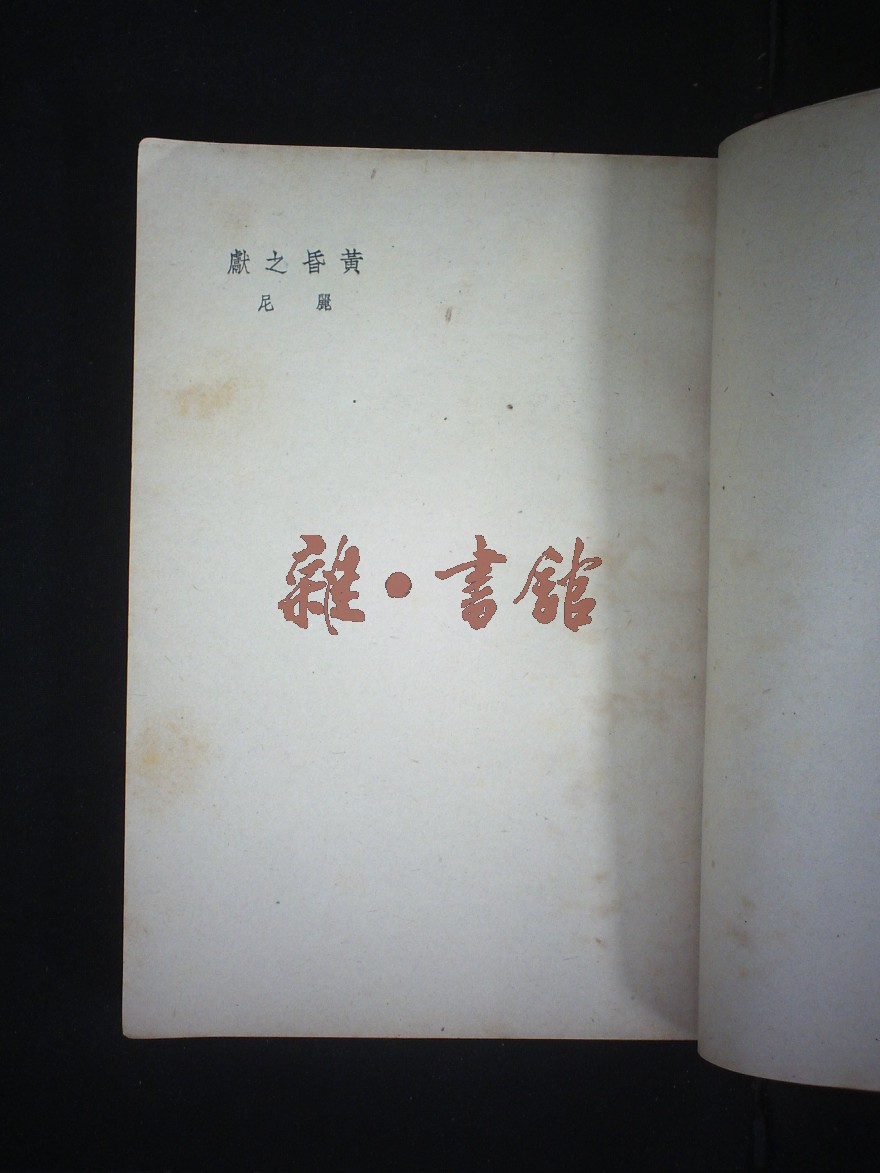 黃昏之獻
麗尼
雜·書館